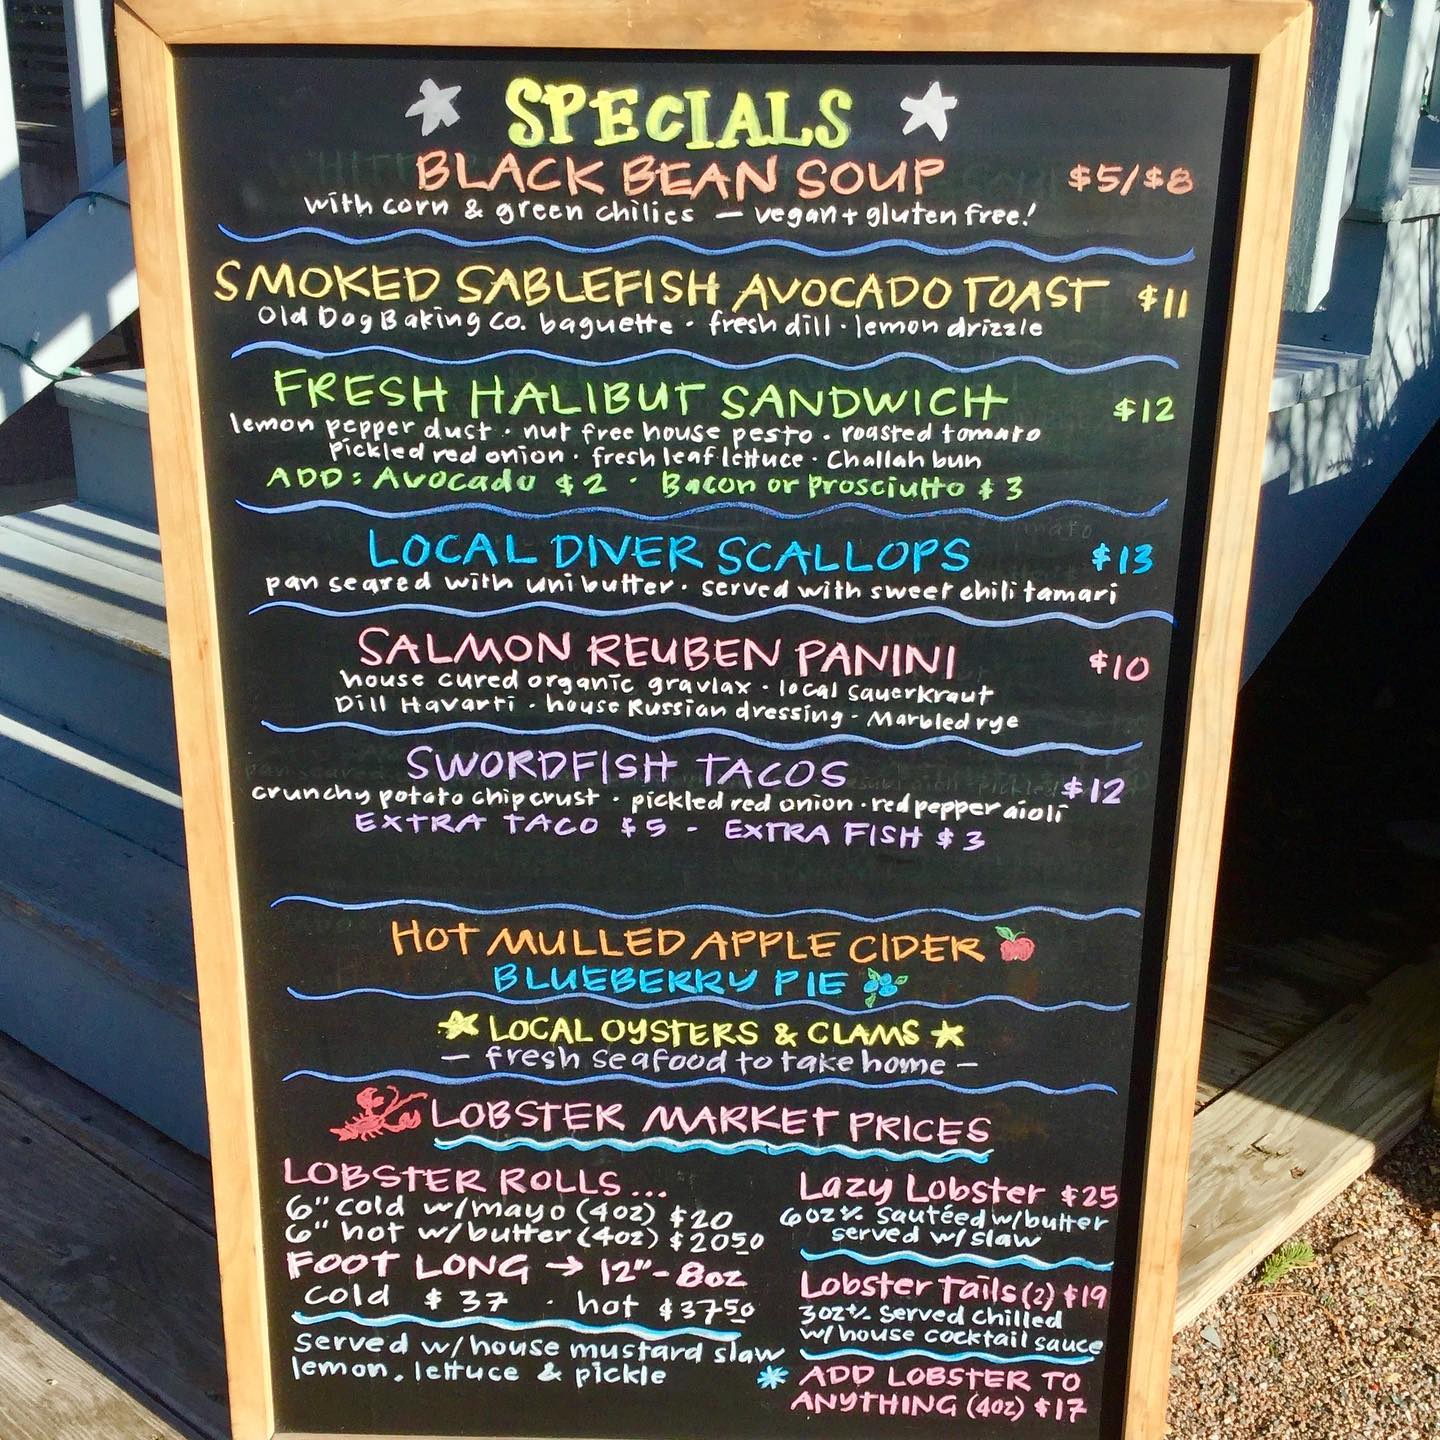 SPECIALS
BLACK BEAN SOUP $5/$8
with corn & green chilies — vegan + gluten free!
SMOKED SABLEFISH AVOCADO TOAST $11
Old Dog Baking Co. baguette · fresh dill · lemon drizzle
FRESH HALIBUT SANDWICH $12
lemon pepper dust · nut free house pesto · roasted tomato
pickled red onion · fresh leaf lettuce · Challah bun
ADD: Avocado $2 · Bacon or Prosciutto $3
LOCAL DIVER SCALLOPS $13
pan seared with uni butter · served with sweet chili tamari
SALMON REUBEN PANINI $10
house cured organic gravlax · local sauerkraut
Dill Havarti · house Russian dressing · Marbled rye
SWORDFISH TACOS $12
crunchy potato chip crust · pickled red onion · red pepper aioli
EXTRA TACO $5 - EXTRA FISH $3
HOT MULLED APPLE CIDER
BLUEBERRY PIE
LOCAL OYSTERS & CLAMS
— fresh seafood to take home —
LOBSTER MARKET PRICES
LOBSTER ROLLS...
6" cold w/mayo (4oz) $20
6" hot w/butter (4oz) $2050
FOOT LONG → 12" - 8oz
cold $37 · hot $3750
Served w/house mustard slaw
lemon, lettuce & pickle
Lazy Lobster $25
6oz+/- sautéed w/butter
served w/slaw
Lobster Tails (2) $19
3oz+/- served chilled
w/house cocktail sauce
* ADD LOBSTER TO
ANYTHING (4oz) $17